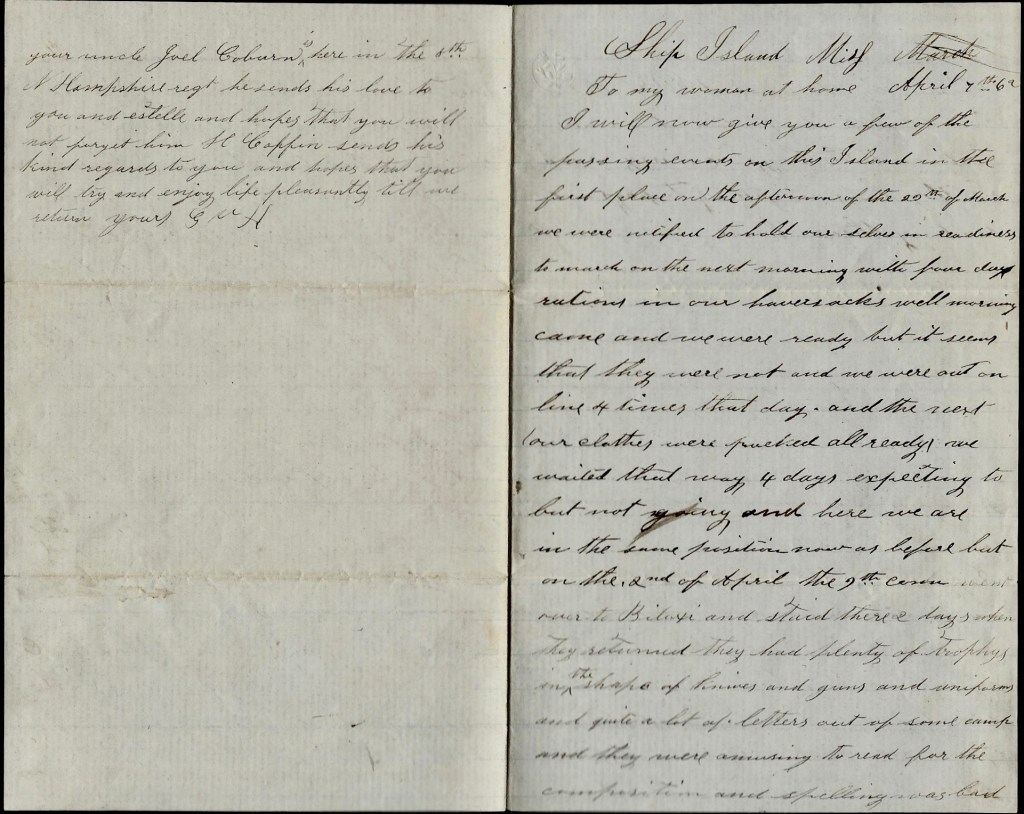 your uncle Joel Coburn is here in the 8th
N Hampshire regt he sends his love to
you and estelle and hopes that you will
not forget him H Coffin sends his
kind regards to you and hopes that you
will try and enjoy life pleasantly till we
return yours
Ship Island Miss March
To my woman at home April 7th 62
I will now give you a few of the
passing events on this Island in the
first place on the afternoon of the 29th of March
we were notified to hold our selves in readiness
to march on the next morning with four days
rations in our haversacks well morning
came and we were ready but it seems
that they were not and we were out on
line 4 times that day. and the next
(our clothes were packed all ready) we
waited that way 4 days expecting to
but not going and here we are
in the same position now as before but
on the 2nd of April the 9th conn went
over to Biloxi and staid there 2 days when
they returned they had plenty of trophys
in the shape of knives and guns and uniforms
and quite a lot of letters out of some camp
and they were amusing to read for the
composition and spelling was bad